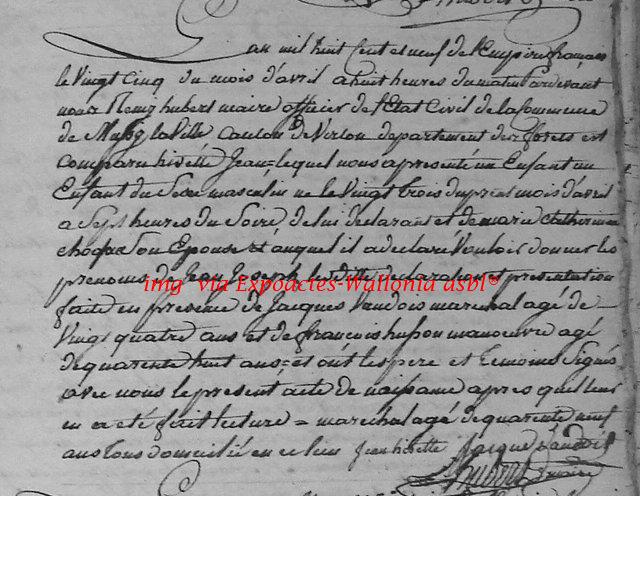 L'an mil huit Cent et neuf de l'Empire francais
le Vingt Cinq du mois d'avril a huit heures du matin Pardevant
nous Remy hubert maire officier de l'Etat Civil de la Commune
de Mussy la Ville Canton de Virton departement des forets est
Comparu hizette Jean = lequel nous a presenté un Enfant un
Enfant du Sexe masculin né le Vingt trois du present mois d'avril
a Sept heures du Soire de lui declarant et de marie Catherinne
choque Son Epouse Et auquel il a declaré Vouloir donner les
prenoms de Jean Joseph lesdittes declaration et presentation
img via Expoactes-Wallonia asbl®
faite en presence de Jacques Vaudois marechal agé de
Vingt quatre ans et de francois husson manoeuvre agé
de quarente huit ans = et ont les pere et Temoins Signés
avec nous le present acte de naissance apres quil leur
en a eté fait lecture = marechal agé de quarente neuf
ans tous domiciliés en ce lieu Jean hizette Jacque Vaudois
hubert maire